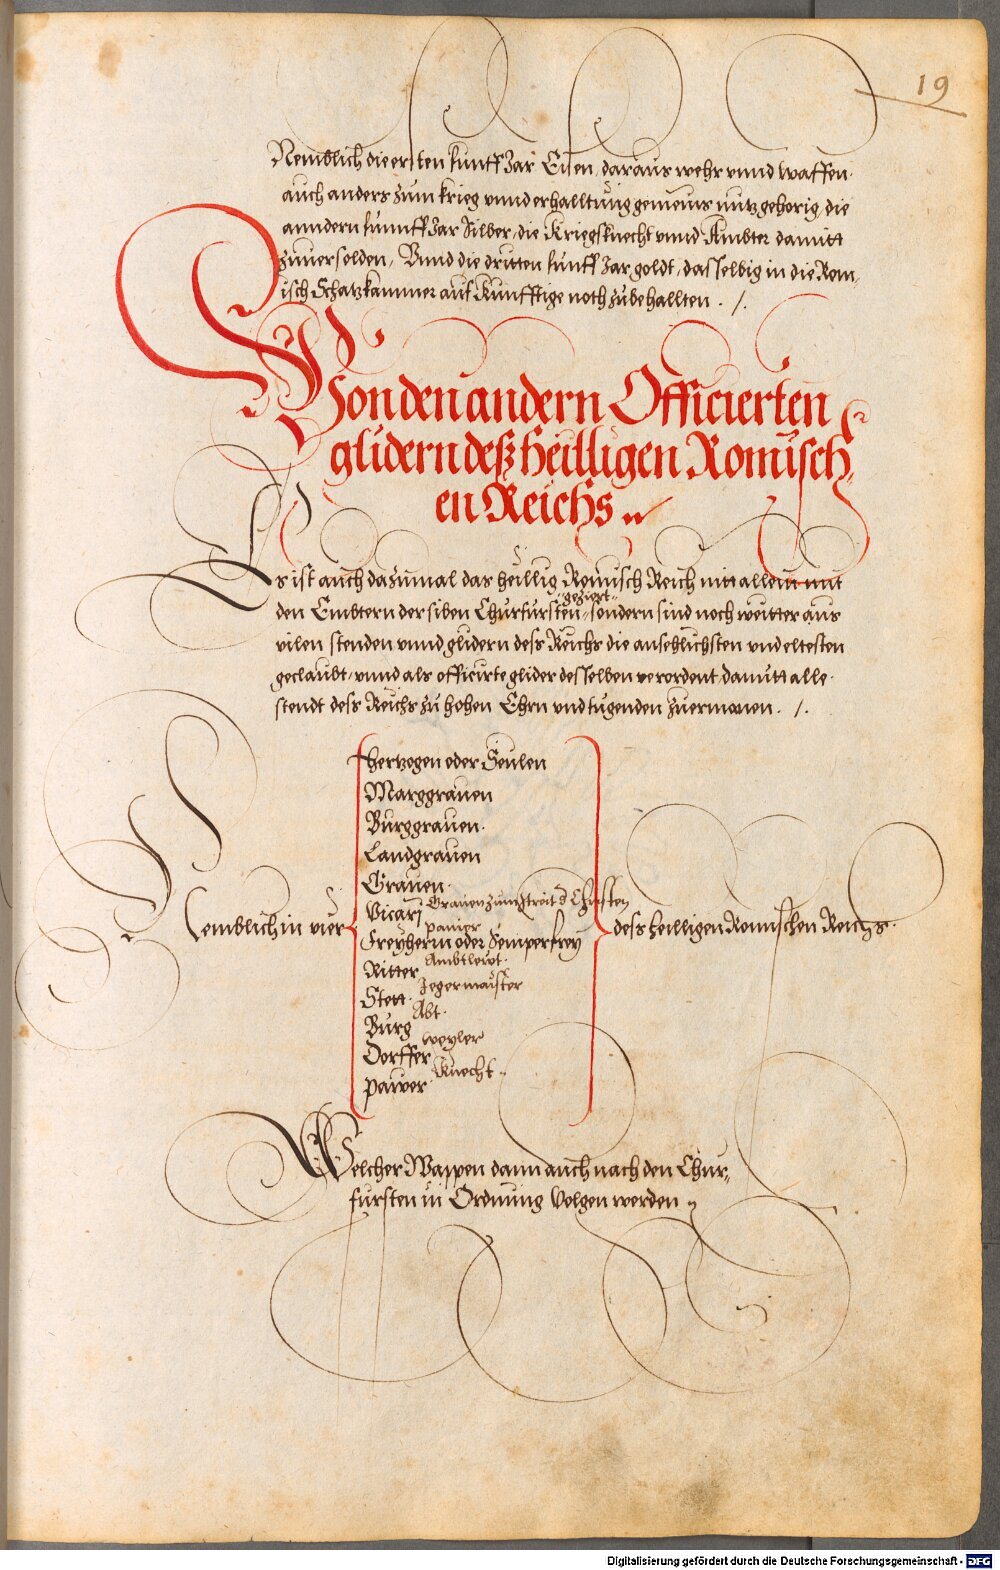 19
Nemblich die ersten funff Jar Eisen, daraus wehr vnnd waffen
auch anders zum krieg vnnd erhalltung gemeins nutz gehorig, die
anndern funnff Jar Silber, die Kriegsknecht vnnd Ambter damitt
zuuersolden, Vnnd die dritten funff Jar goldt, dasselbig in die Rom,
isch Schatzkammer auf kunfftige noth zubehallten . /.
Von den andern Officierten
glidern deß heilligen Romisch,
en Reichs
Es ist auch dazumal das heillig Romisch Reich nitt allein mit
geziert
den Embtern der siben Churfursten, sondern sind noch weitter aus
vilen stenden vnnd glidern dess Reichs die ansehlichsten vnd eltesten
geclaubt, vnnd als officirte glider desselben verordent damitt alle
stendt dess Reichs zu hohen Ehrn vnd tugenden zuermanen . /.
Hertzogen oder Seulen
Marggrauen
Burggrauen.
Landgrauen
Grauen.
Vicarj Grauen zum streit d Christen
panier
Nemblich in vier Freyherrn oder Semperfrey dess heilligen Romischen Reichs.
Ritter Ambtlewt.
Stett. Jegermaister
Burg Abt.
Dorffer weyler
pawer Knecht
Welcher Wappen dann auch nach den Chur,
fursten in Ordnung Volgen werden
Digitalisierung gefördert durch die Deutsche Forschungsgemeinschaft - DFG